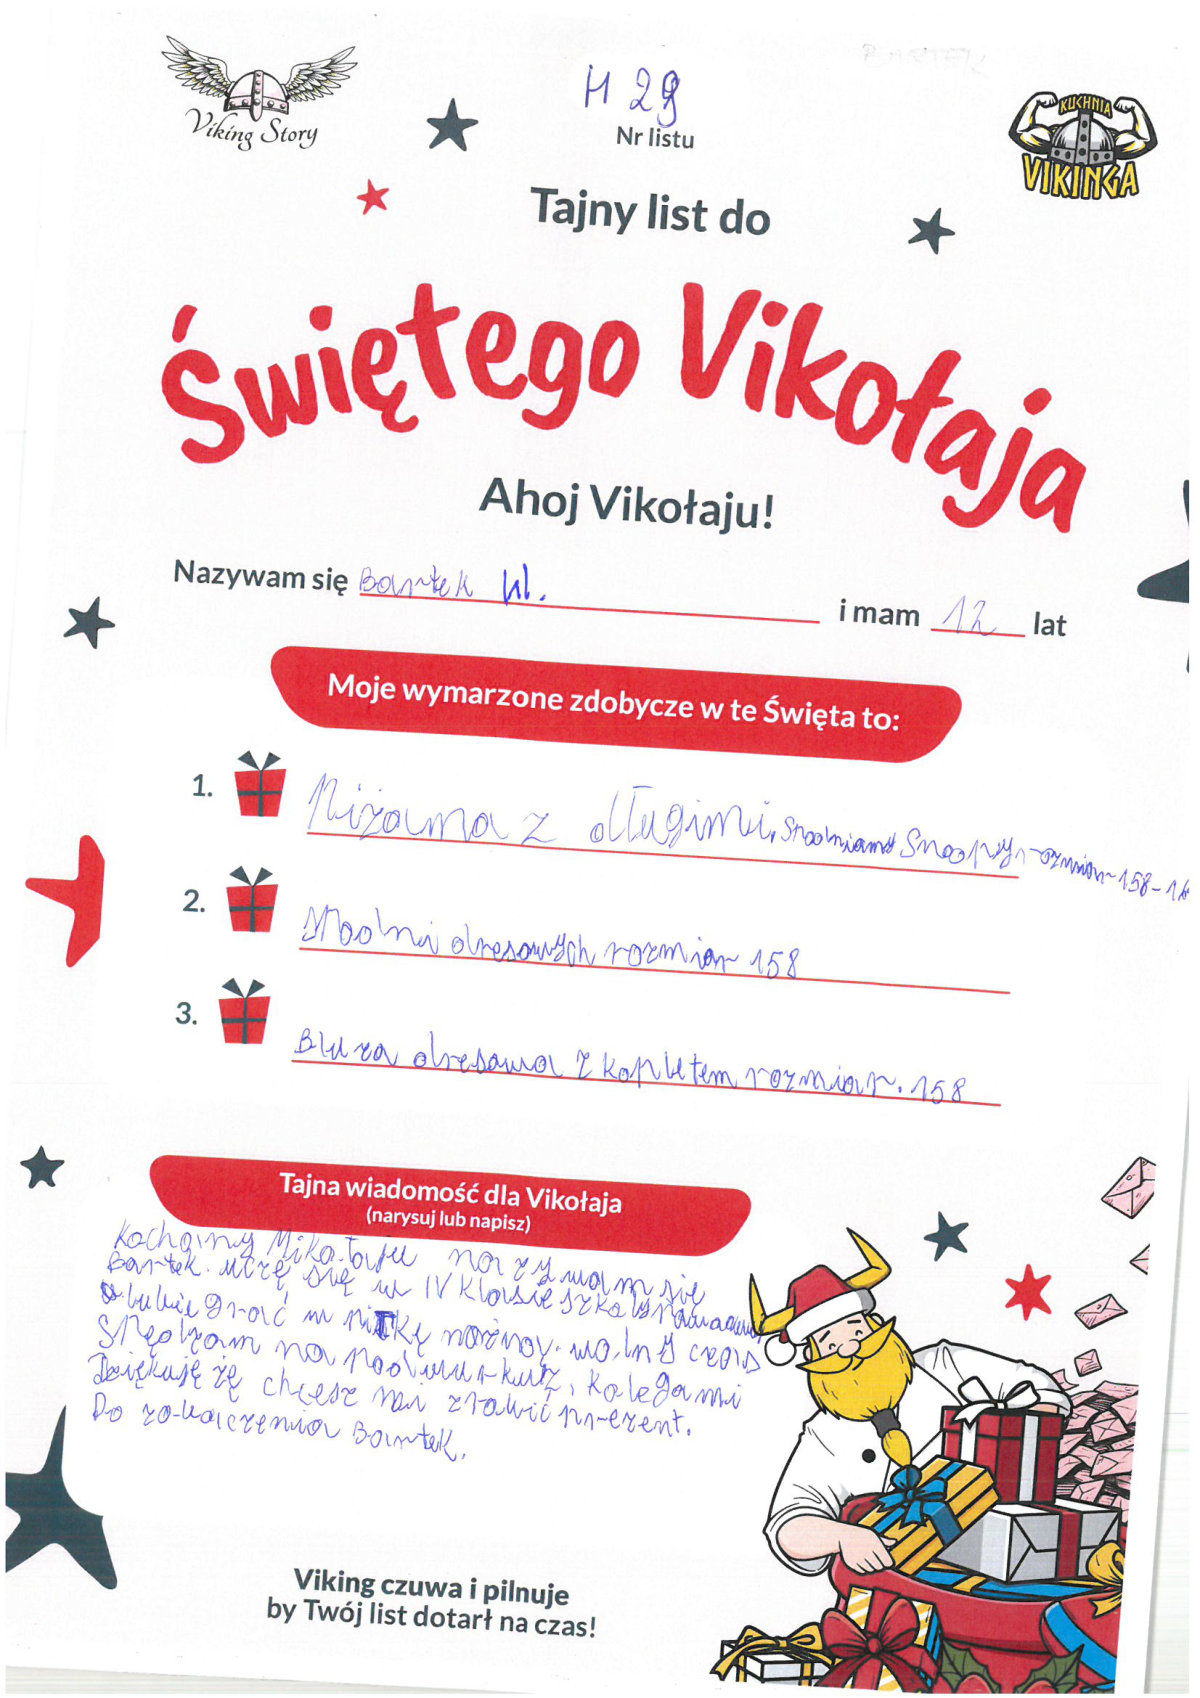 Viking Story
H 29
Nr listu
KUCHNIA
VIKINGA
Tajny list do
Świętego Vikołaja
Ahoj Vikołaju!
Nazywam się Bartek W. i mam 12 lat
Moje wymarzone zdobycze w te Święta to:
1. Piżama z długimi, spodniami Snoopy rozmiar 158-16
2. Spodni dresowych rozmiar 158
3. Bluza dresowa z kopletem rozmiar. 158
Tajna wiadomość dla Vikołaja
(narysuj lub napisz)
Kochany Mikołaju nazywam się
Bartek. uczę się w IV klasie szkoły
lubię grać w piłkę nożnoy. wolny czas
Spędzam na podwurkuz, kolegami
Dziękuję żę chcesz mi zrobić prezent.
Do zobaczenia Bartek.
Viking czuwa i pilnuje
by Twój list dotarł na czas!